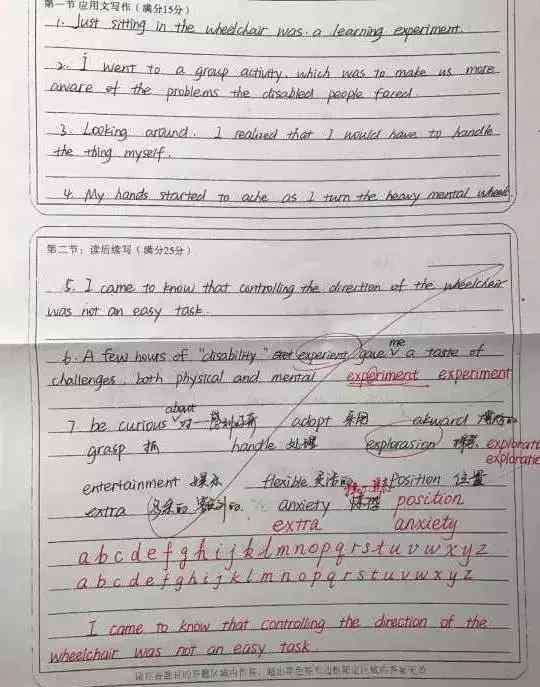 第一节 应用文写作（满分15分）
1. Just sitting in the wheelchair was a learning experiment.
2. I went to a group activity, which was to make us more
aware of the problems the disabled people faced.
3. Looking around, I realized that I would have to handle
the thing myself.
4. My hands started to ache as I turn the heavy mental wheel.
第二节：读后续写（满分25分）
5. I came to know that controlling the direction of the wheelchair
was not an easy task.
me
6. A few hours of "disability" experient gave a taste of
challenges, both physical and mental experiment experiment
about
7 be curious 对一 adopt 采用 akward
grasp 抓 handle 处理 explorasion
entertainment 娱乐 flexible 灵活的 position 位置
extra 额外的 anxiety position
extra anxiety
a b c d e f g h i j k l m n o p q r s t u v w x y z
a b c d e f g h i j k l m n o p q r s t u v w x y z
I came to know that controlling the direction of the
wheelchair was not an easy task.